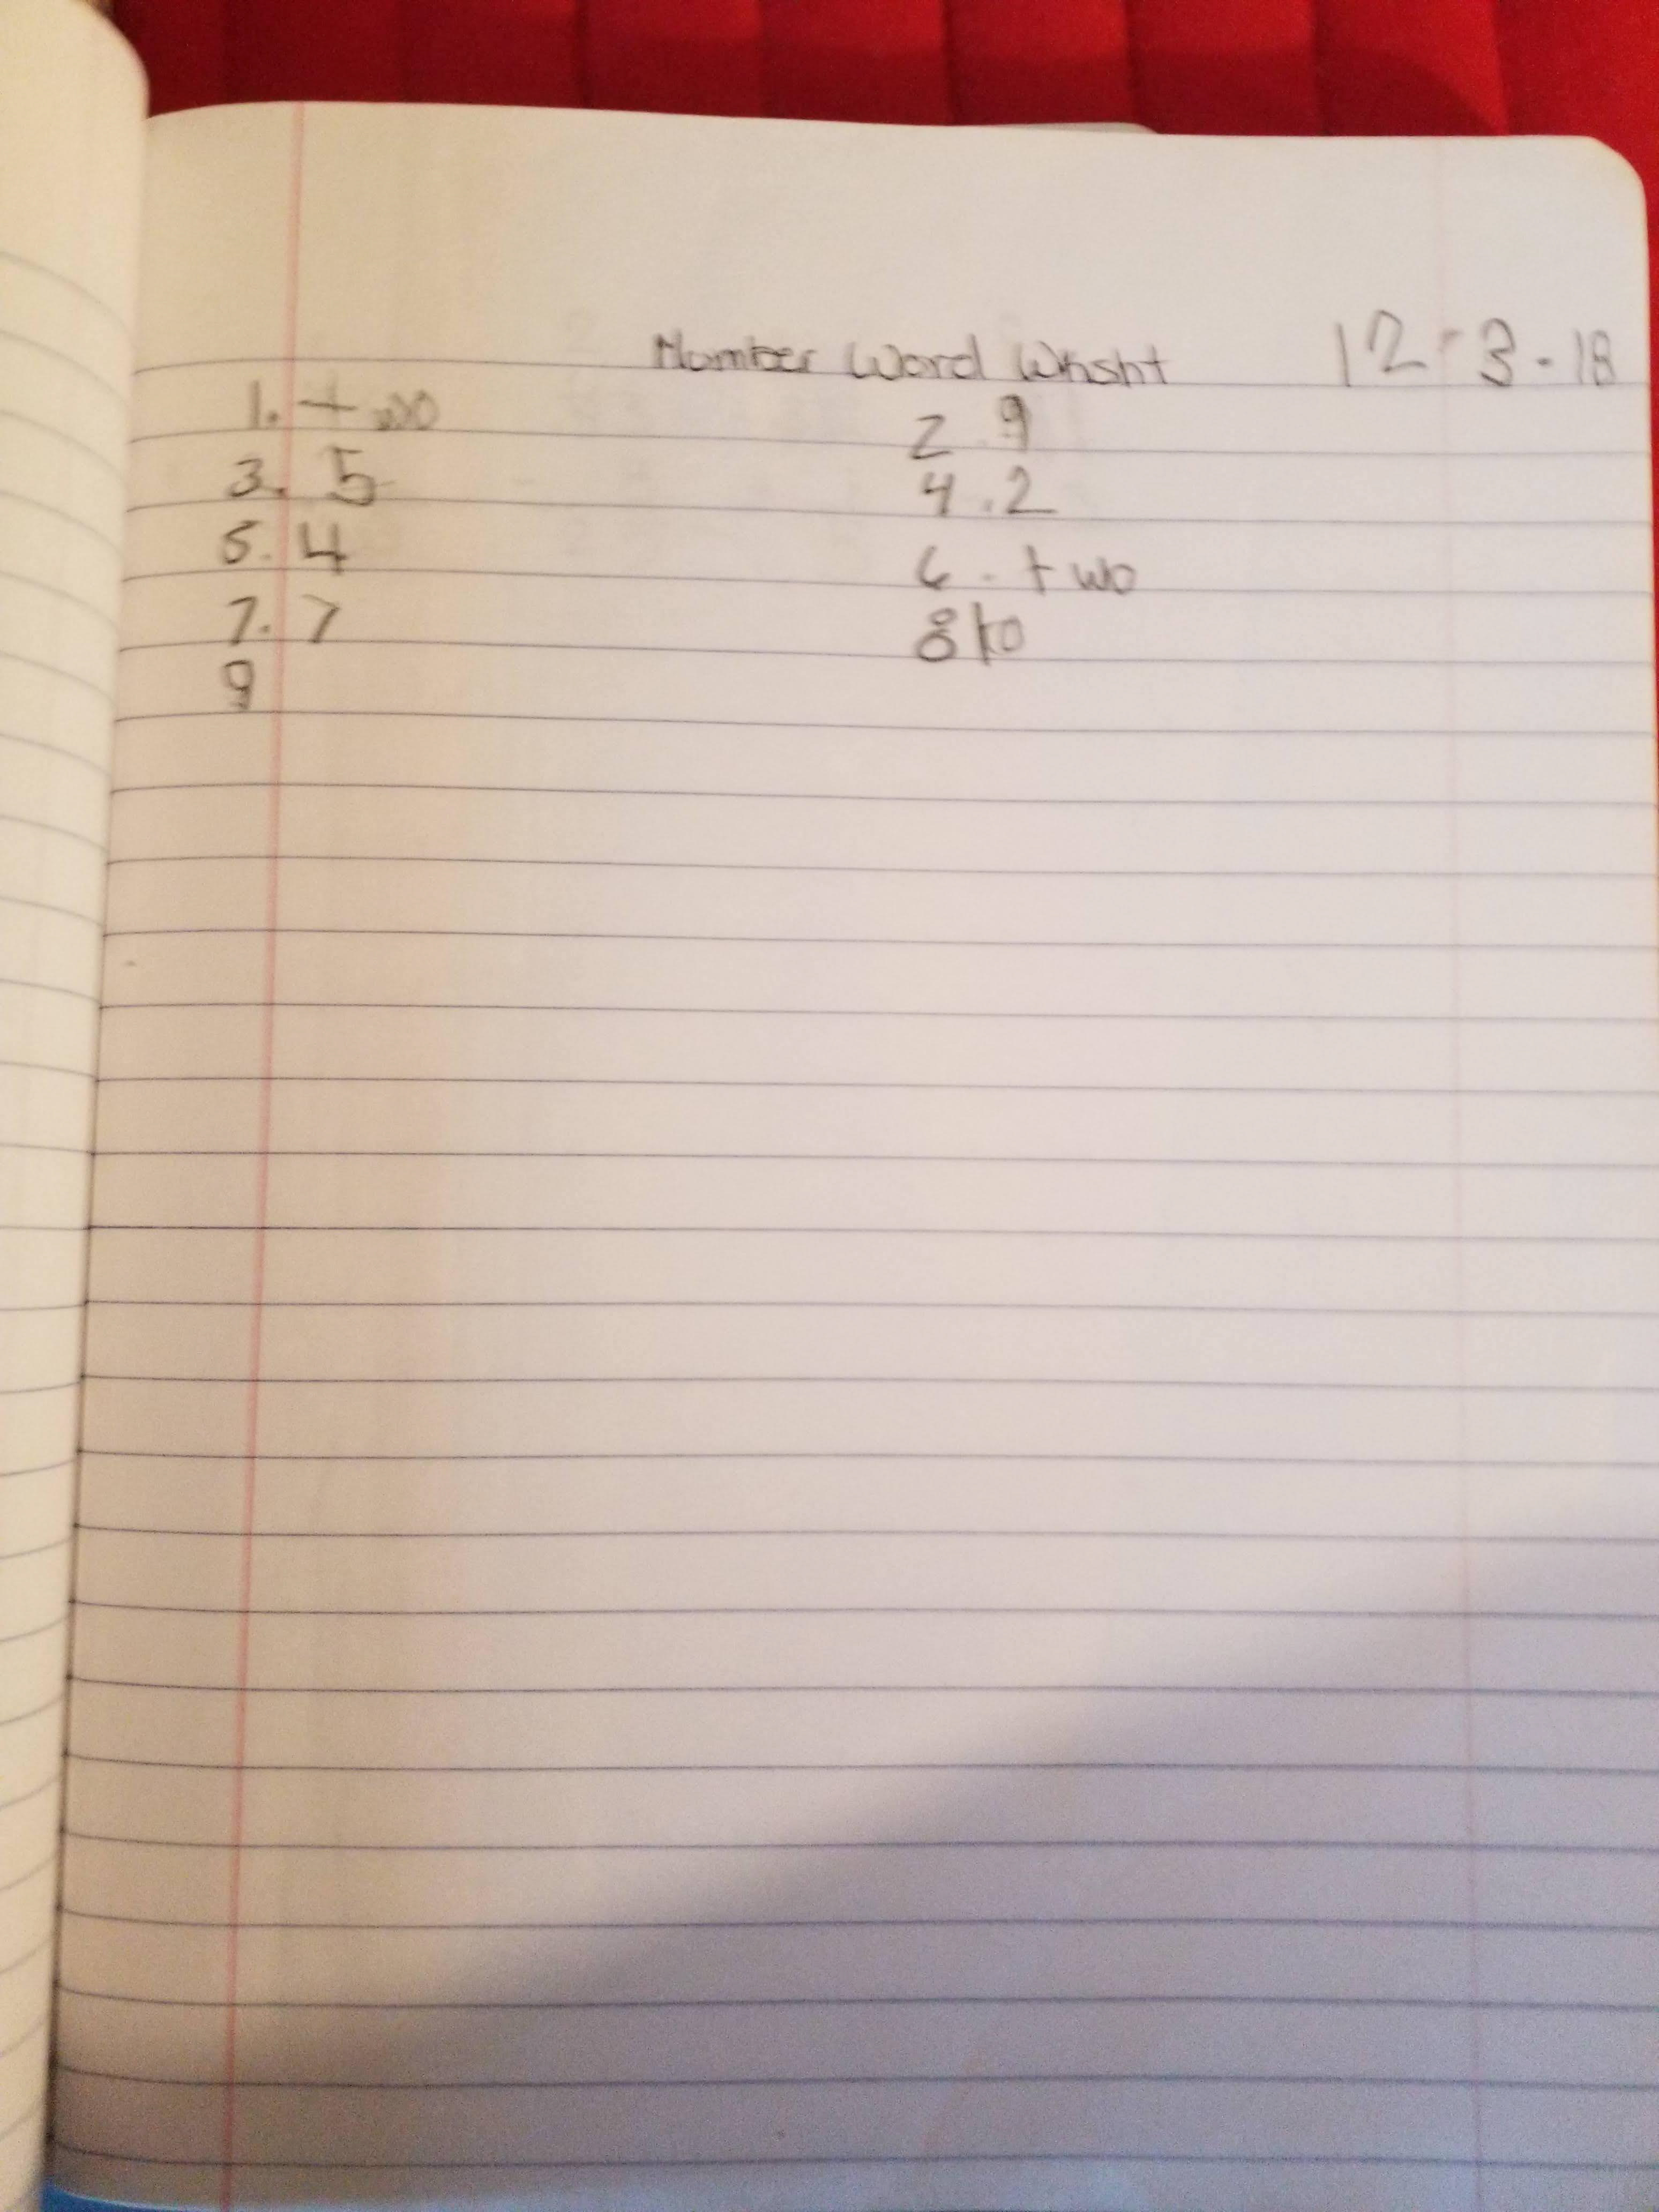 Number Word Whsht 12-3-18
1. two 2. 9
3. 5 4. 2
5. 4 6. two
7. 7 8 10
9